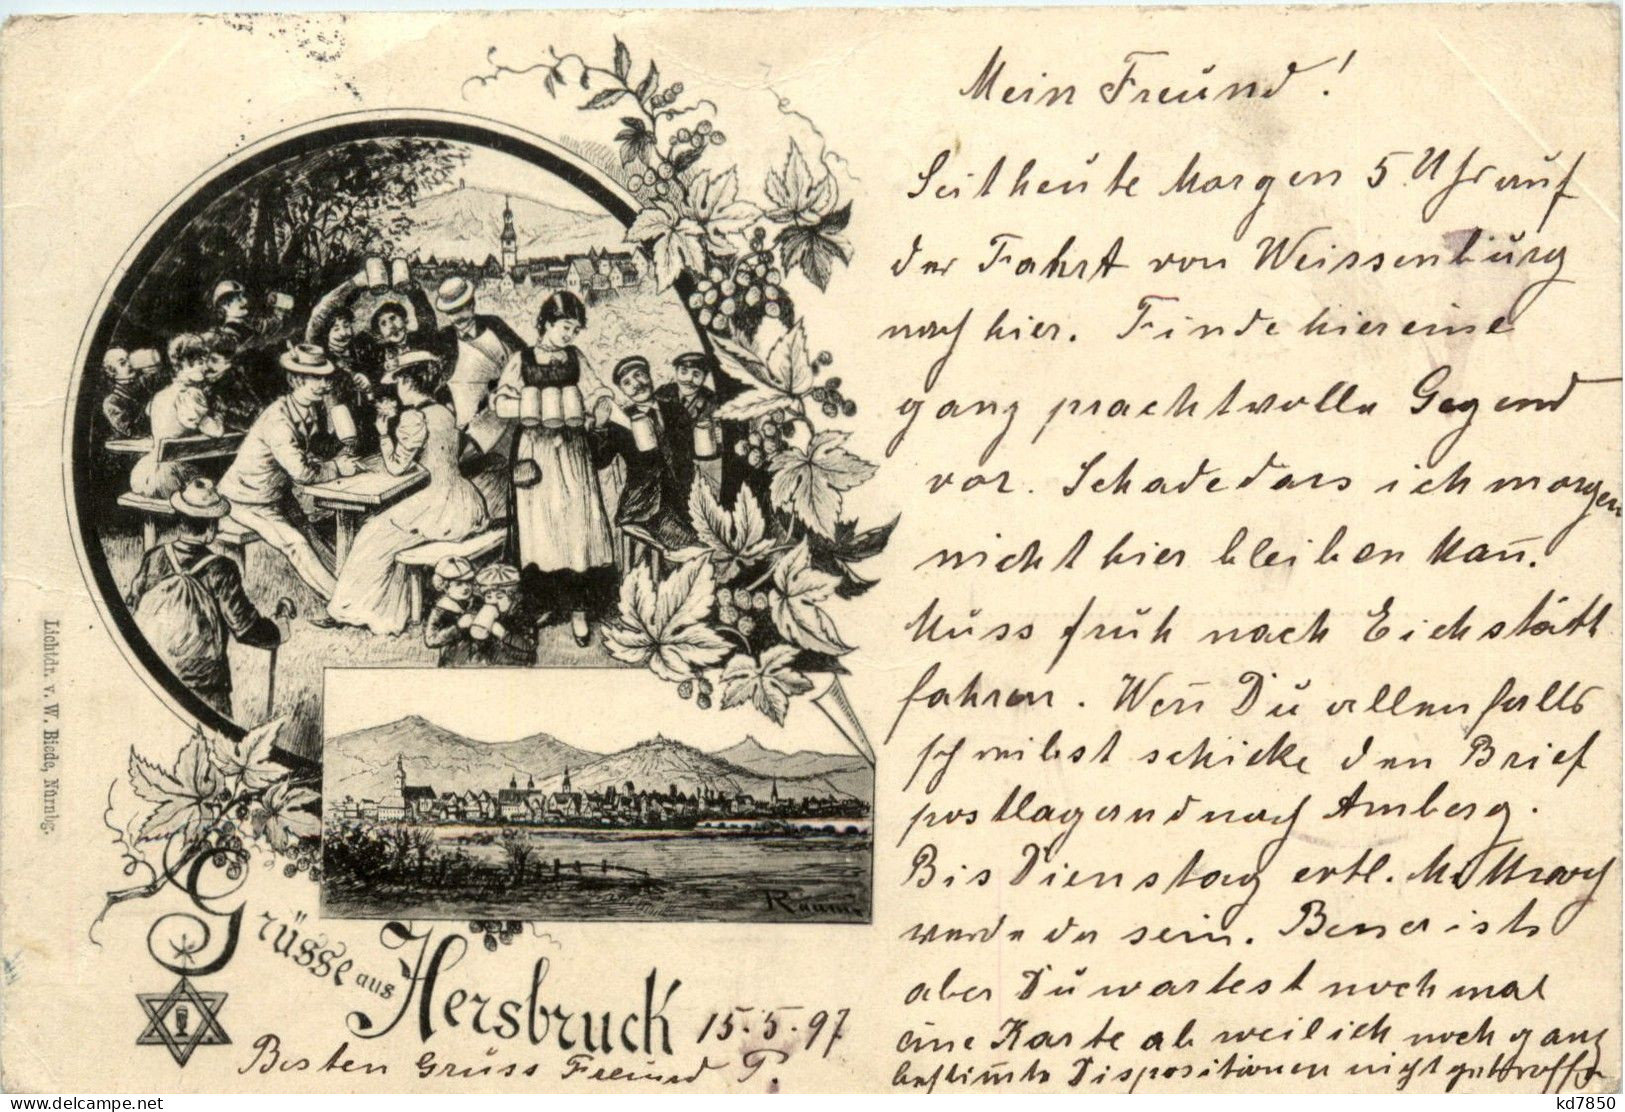 Mein Freund!
Seit heute Morgen 5 Uhr auf
der Fahrt von Weissenburg
nach hier. Finde hier eine
ganz prachtvolle Gegend
vor. Schade dass ich morgen
nicht hier bleiben kan̅.
Muss früh nach Eichstätt
fahren. Wen̅ Du allenfalls
schreibst schicke den Brief
postlagernd nach Amberg.
Bis Dienstag evtl. Mittwoch
werde da sein. Besser ists
aber Du wartest noch mal
eine Karte ab weil ich noch ganz
bestim̅te Dispositionen nicht getroffen
Raum
Grüsse aus Hersbruck
15.5.97
Besten Gruss Freund P.
Lichtdr. v. W. Biede, Nürnbg.
kd7850